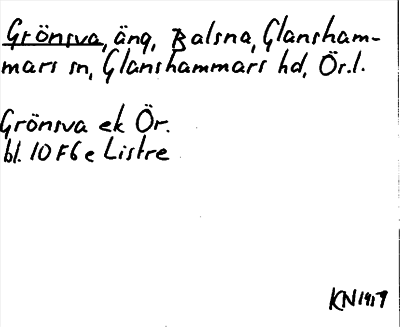 Grönsva, äng, Balsna, Glansham-
mars sn, Glanshammars hd, Ör.l.
Grönsva ek Ör.
bl. 10 F6 e Listre